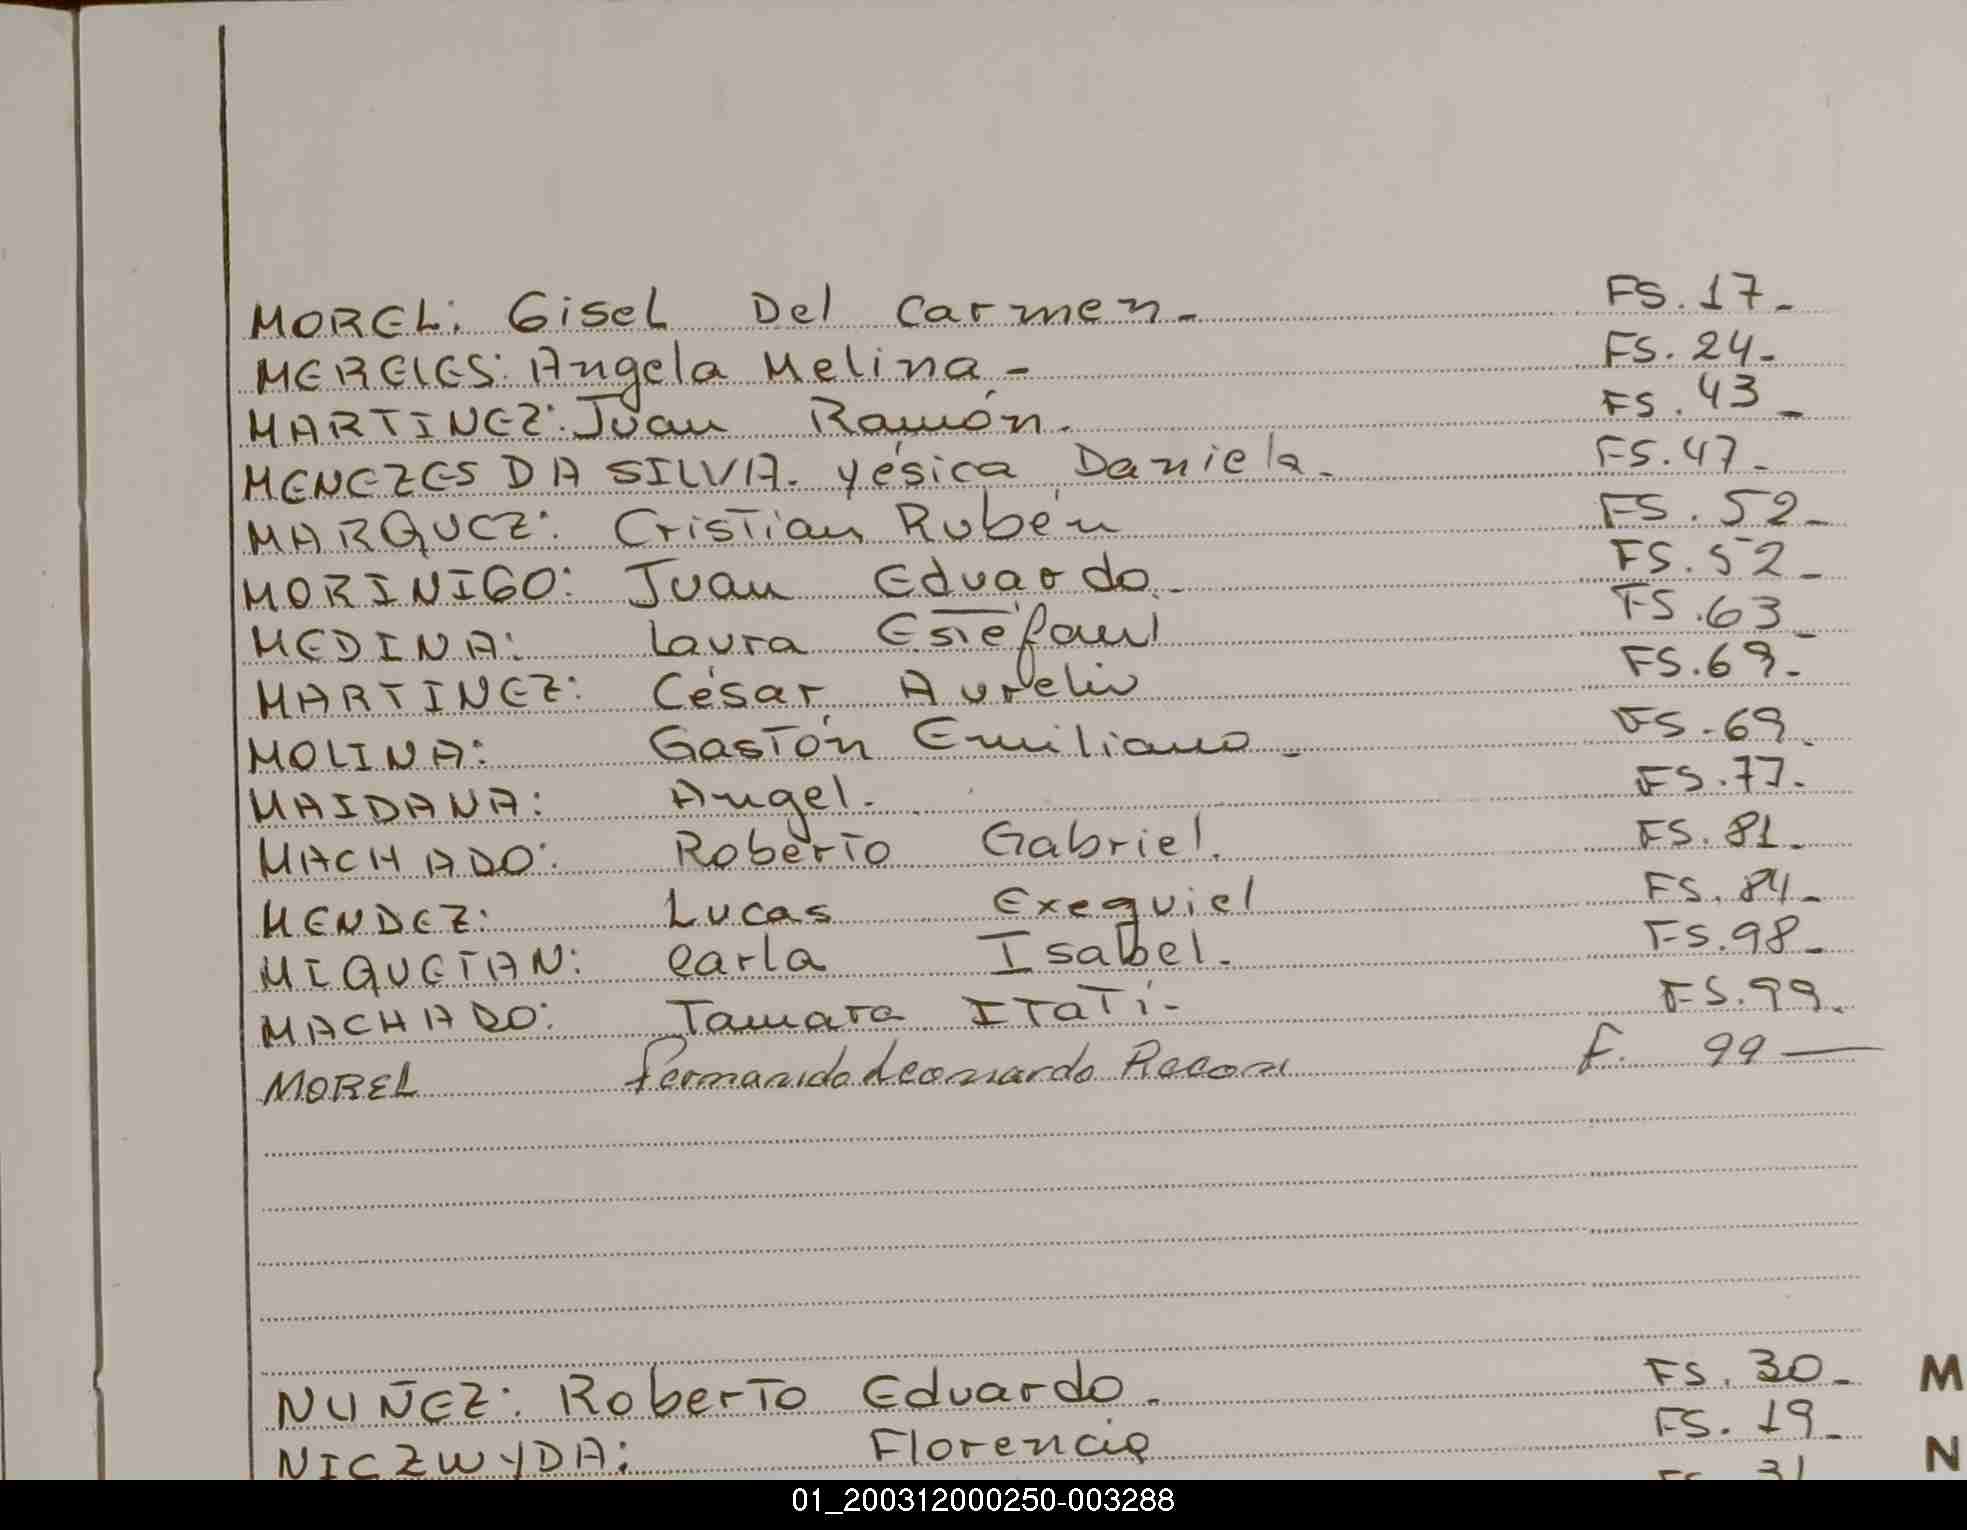 MOREL: Gisel Del Carmen - FS. 17 -
MERELES: Angela Melina - FS. 24 -
MARTINEZ: Juan Ramón. FS. 43 -
MENEZES DA SILVA. Yésica Daniela. FS. 47 -
MARQUEZ: Cristian Rubén FS. 52 -
MORINIGO: Juan Eduardo. FS. 52 -
MEDINA: Laura FS. 63 -
MARTINEZ: César Aurelio FS. 69 -
MOLINA: Gastón Emiliano - FS. 69.
MAIDANA: Angel. FS. 77.
MACHADO: Roberto Gabriel. FS. 81 -
MENDEZ: Lucas Exequiel FS. 84 -
MIQUETAN: Carla Isabel. FS. 98 -
MACHADO: Tamara ITATí - FS. 99.
MOREL Leonardo F. 99 —
NUÑEZ: Roberto Eduardo. FS. 30 - M
NICZWYDA: Florencia FS. 19 -
N
31
01_200312000250-003288